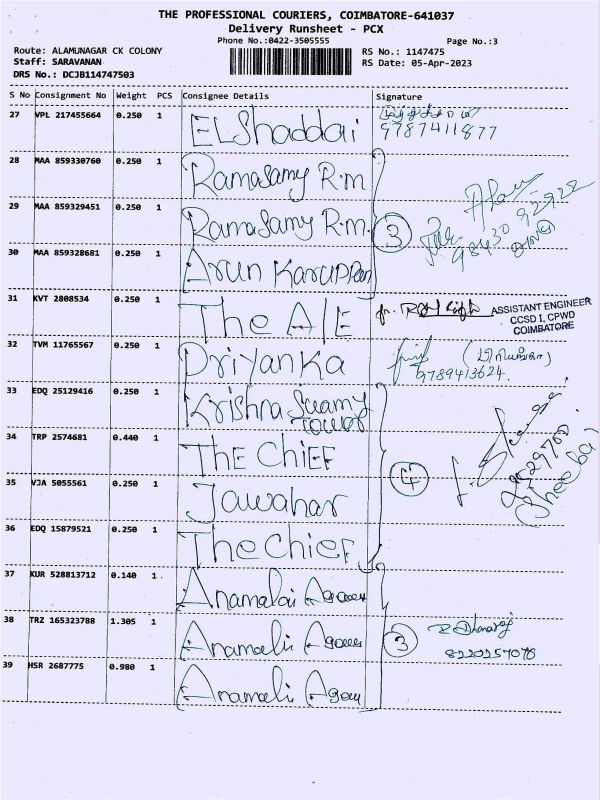 THE PROFESSIONAL COURIERS, COIMBATORE-641037
Delivery Runsheet - PCX
Phone No.:0422-3505555 Page No.:3
Route: ALAMUNAGAR CK COLONY RS No.: 1147475
Staff: SARAVANAN RS Date: 05-Apr-2023
DRS No.: DCJB114747503
S No Consignment No Weight PCS Consignee Details Signature
27 VPL 217455664 0.250 1 ELShaddai
9787411877
28 MAA 859330760 0.250 1 Ramasamy R.m
29 MAA 859329451 0.250 1 Ramasamy R.m. 3 98430 92922
30 MAA 859328681 0.250 1 Arun Karuppan
31 KVT 2808534 0.250 1 The A/E ASSISTANT ENGINEER
CCSD I, CPWD
COIMBATORE
32 TVM 11765567 0.250 1 Priyanka (பிரியங்கா)
9789413624.
33 EDQ 25129416 0.250 1 Krishna Swamy
Tower
34 TRP 2574681 0.440 1 THE CHIEF
35 VJA 5055561 0.250 1 Jawahar 4 Sheeba
36 EDQ 15879521 0.250 1 The Chief
37 KUR 528813712 0.140 1 Anamalai
38 TRZ 165323788 1.305 1 Anamali 3
8220257078
39 HSR 2687775 0.980 1 Anamali